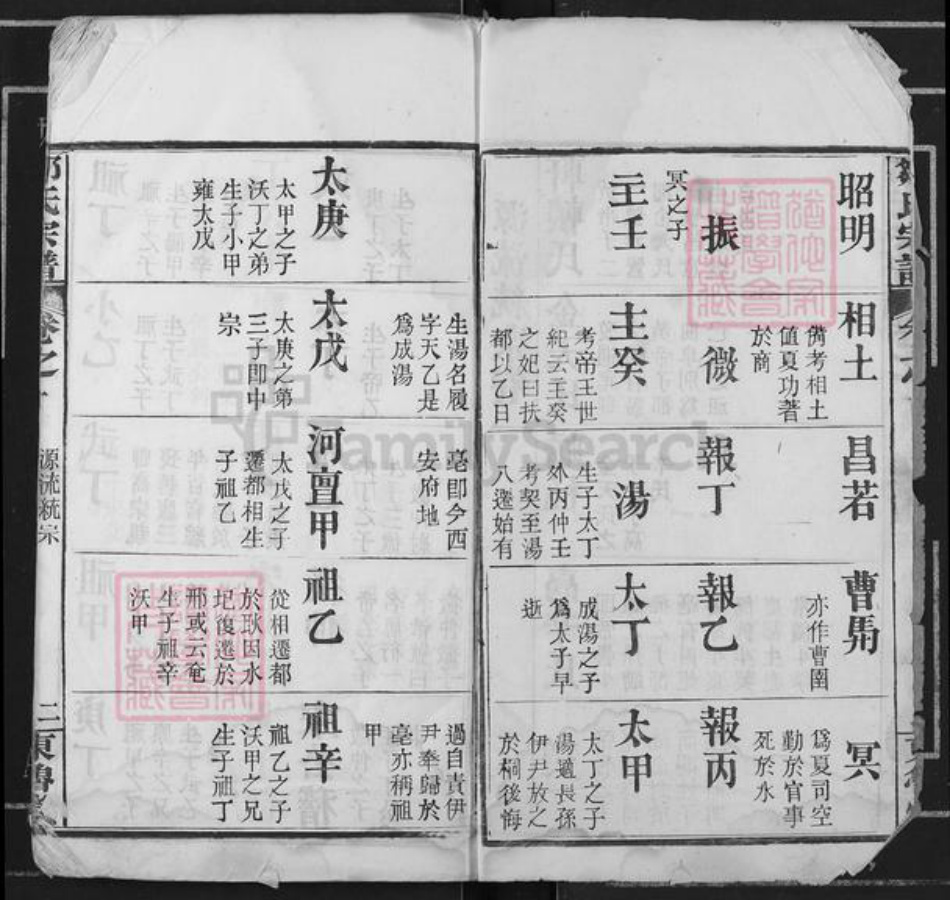 昭明
相土
偁考相土
值夏功著
於商
昌若
曹圉
亦作曹圉
冥
爲夏司空
勤於官事
死於水
振
冥之子
微
報丁
報乙
報丙
主壬
主癸
考帝王世
紀云主癸
之妃曰扶
都以乙日
生湯名履
字天乙是
爲成湯
湯
生子太丁
外丙仲壬
考契至湯
八遷始有
亳卽今西
安府地
太丁
成湯之子
爲太子早
逝
太甲
太丁之子
湯適長孫
伊尹放之
於桐後悔
過自責伊
尹奉歸於
亳亦稱祖
甲
太庚
太甲之子
沃丁之弟
生子小甲
雍太戊
太戊
太庚之弟
三子卽中
宗
河亶甲
太戊之子
遷都相生
子祖乙
祖乙
從相遷都
於耿因水
圮復遷於
邢或云奄
生子祖辛
沃甲
祖辛
祖乙之子
沃甲之兄
生子祖丁
氏宗譜
卷之
源流統宗
二
FamilySearch